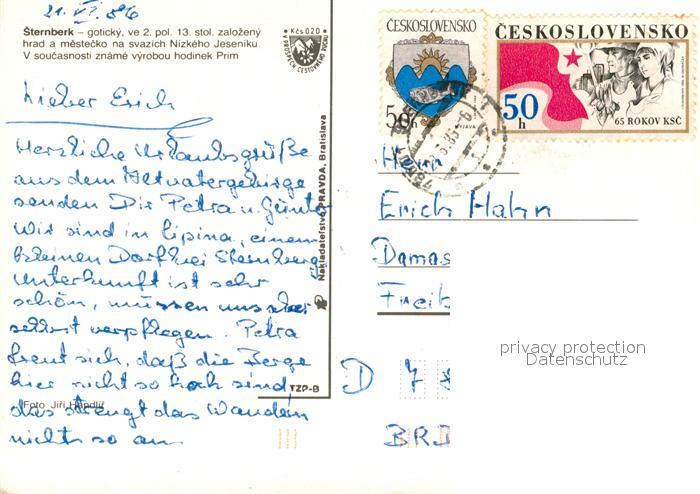 21. VI. 86
Šternberk – gotický, ve 2. pol. 13. stol. založený
hrad a městečko na svazích Nízkého Jeseníku.
V současnosti známé výrobou hodinek Prim
Kčs 0,20
V PROSPĚCH CESTOVNÍHO RUCHU
Lieber Erich
Herzliche Urlaubsgrüße
aus dem Altvatergebirge
senden Dir Petra u. Günter
Wir sind in Lipina, einem
kleinen Dorf bei Sternberg
Unterkunft ist sehr
schön, müssen uns aber
selbst verpflegen. Petra
freut sich, daß die Berge
hier nicht so hoch sind,
das strengt das Wandern
nicht so an.
Foto Jiří Handlíř
Nakladatelství PRAVDA, Bratislava
TZP-B
ČESKOSLOVENSKO
50h
MYJAVA
ČESKOSLOVENSKO
50
h
65 ROKOV KSČ
Herrn
Erich Hahn
Damas
Freib
D 7
BRD
privacy protection
Datenschutz